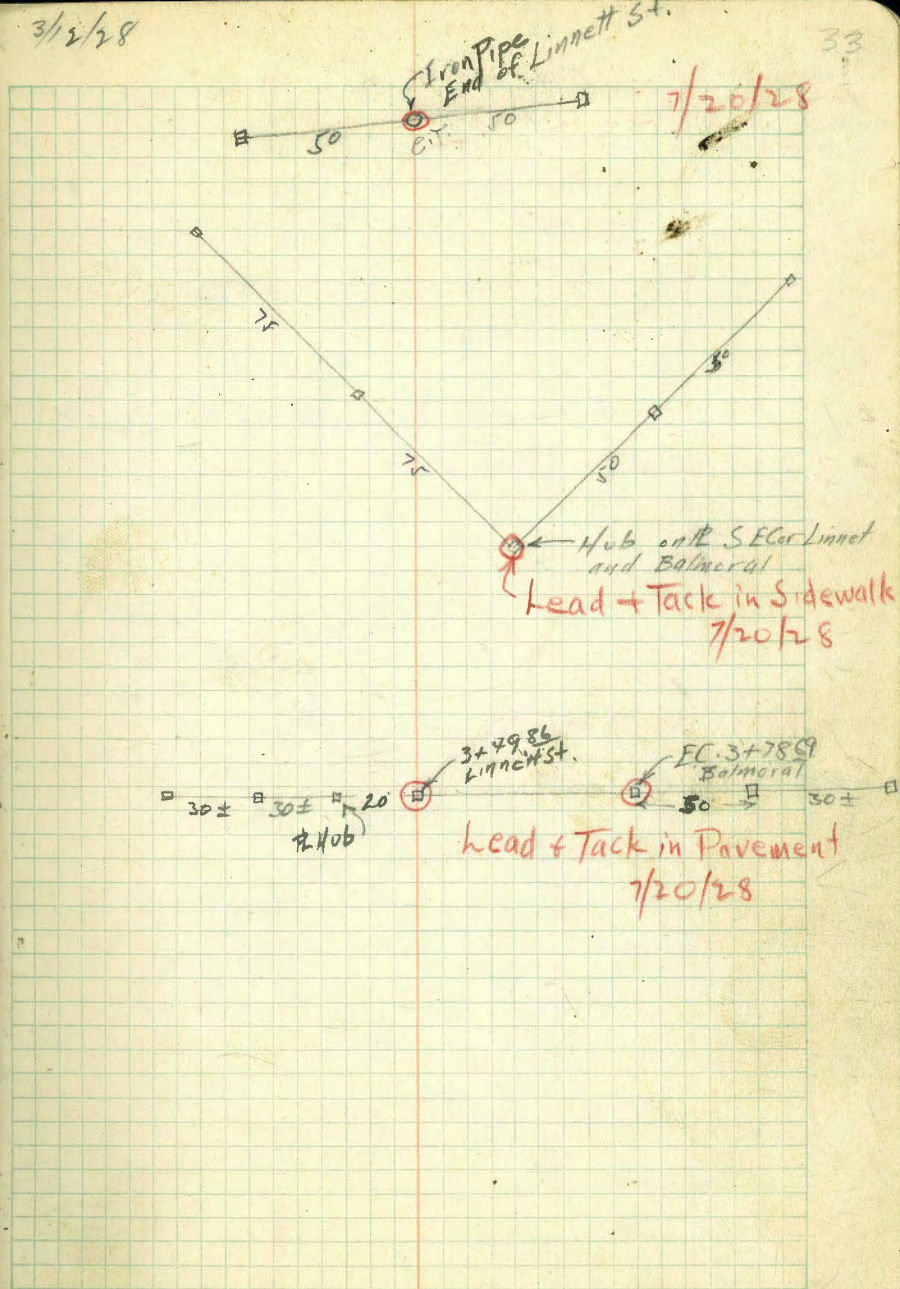 3/12/28
33
Iron Pipe
End of Linnett St.
7/20/28
50
50
75
50
75
50
Hub on PL S E Cor Linnet
and Balmoral
Lead + Tack in Sidewalk
7/20/28
3+79 86
Linnett St.
EC. 3+78 69
Balmoral
30 ± 30 ± 20 50 30 ±
PL Hub
Lead + Tack in Pavement
7/20/28